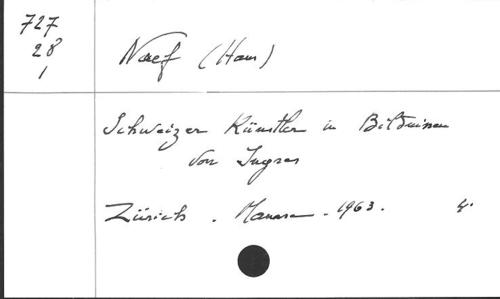 727
28
1
Naef (Hans)
Schweizer Künstler in Bildnissen
von Ingres
Zürich. Manesse. 1963.